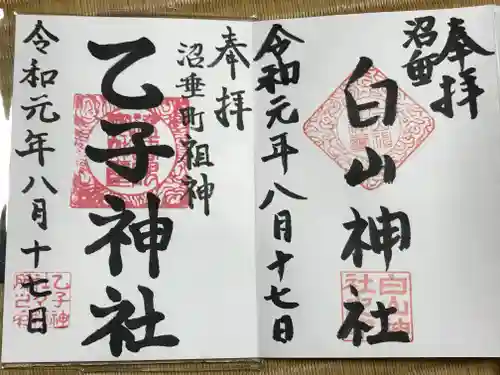 奉拝
沼垂
白山神社
令和元年八月十七日
奉拝
沼垂町祖神
乙子神社
令和元年八月十七日